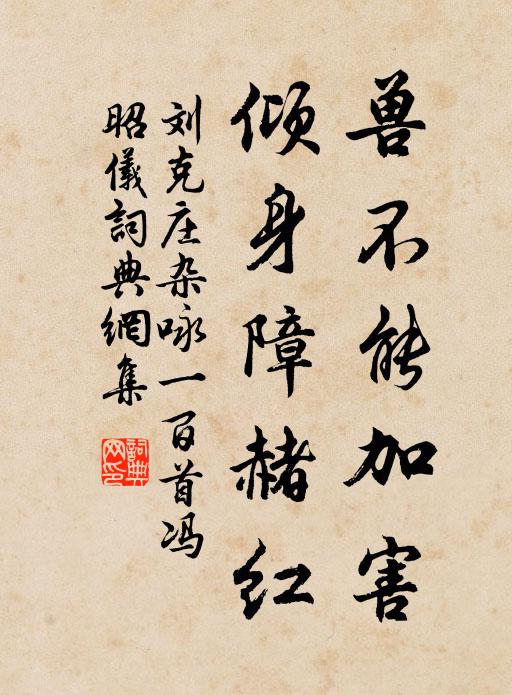 兽不能加害
倾身障赭红
刘克庄杂咏一百首冯
昭儀詞典網集
詞典
网印